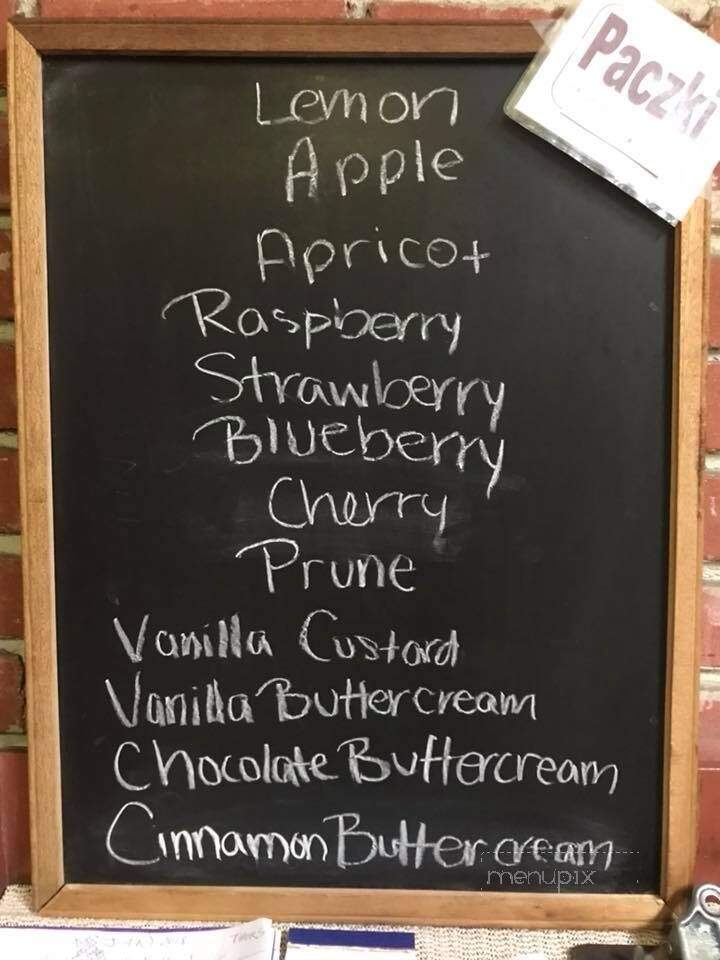 Paczki
Lemon
Apple
Apricot
Raspberry
Strawberry
Blueberry
Cherry
Prune
Vanilla Custard
Vanilla Buttercream
Chocolate Buttercream
Cinnamon Buttercream
menupix